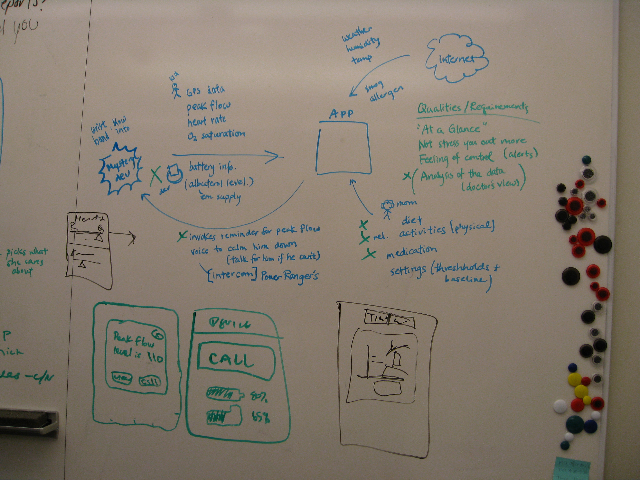 weather
humidity
temp
Internet
smog
allergen
GPS data
peak flow
heart rate
O2 saturation
APP
Qualities/Requirements
"At a Glance"
Not stress you out more
Feeling of control (alerts)
X (Analysis of the data
(doctor's view)
Mystery
dev
X
battery info.
(albuterol level.)
'em supply
mom
X diet
X rel. activities [physical]
X medication
settings (threshholds +
baseline)
X invokes reminder for peak flow
voice to calm him down
(talk for him if he can't)
[intercom] Power Ranger's
picks what
she cares
about
DEVICE
Peak flow
level is 110
CALL
call
80%
65%